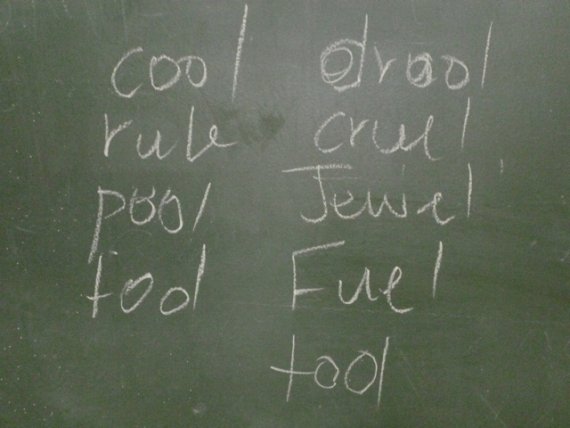 cool drool
rule cruel
pool Jewel
tool Fuel
tool